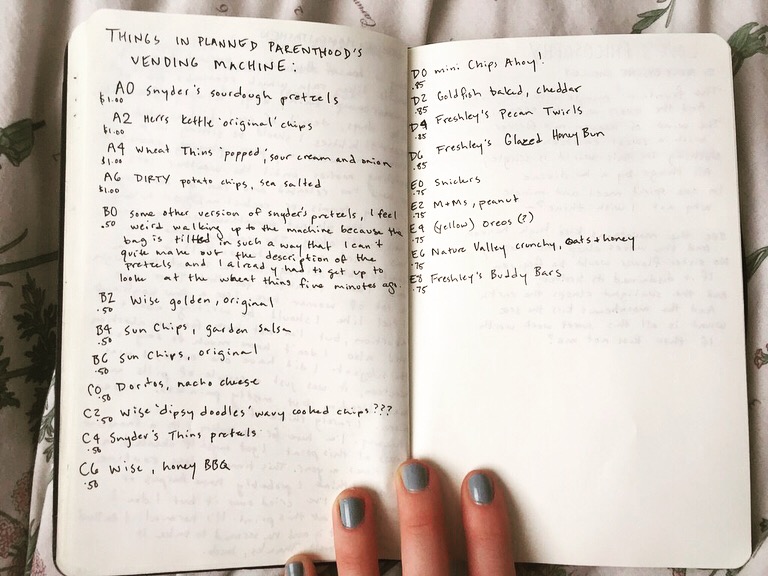 THINGS IN PLANNED PARENTHOOD'S
VENDING MACHINE:
A0 Snyder's sourdough pretzels
$1.00
A2 Herrs kettle 'original' chips
$1.00
A4 Wheat Thins 'popped', sour cream and onion
$1.00
A6 DIRTY potato chips, sea salted
$1.00
B0 some other version of snyder's pretzels, I feel
.50 weird walking up to the machine because the
bag is tilted in such a way that I can't
quite make out the description of the
pretzels and I already had to get up to
look at the wheat thins five minutes ago.
B2 Wise golden, original
.50
B4 Sun Chips, garden salsa
.50
B6 Sun Chips, original
.50
C0 Doritos, nacho cheese
.50
C2 Wise 'dipsy doodles' wavy cooked chips???
.50
C4 Snyder's Thins pretzels
.50
C6 Wise, honey BBQ
.50
D0 mini Chips Ahoy!
.85
D2 Goldfish baked, cheddar
.85
D4 Freshley's Pecan Twirls
.85
D6 Freshley's Glazed Honey Bun
.85
E0 Snickers
.75
E2 M+Ms, peanut
.75
E4 (yellow) Oreos (?)
.75
E6 Nature Valley crunchy, oats + honey
.75
E8 Freshley's Buddy Bars
.75